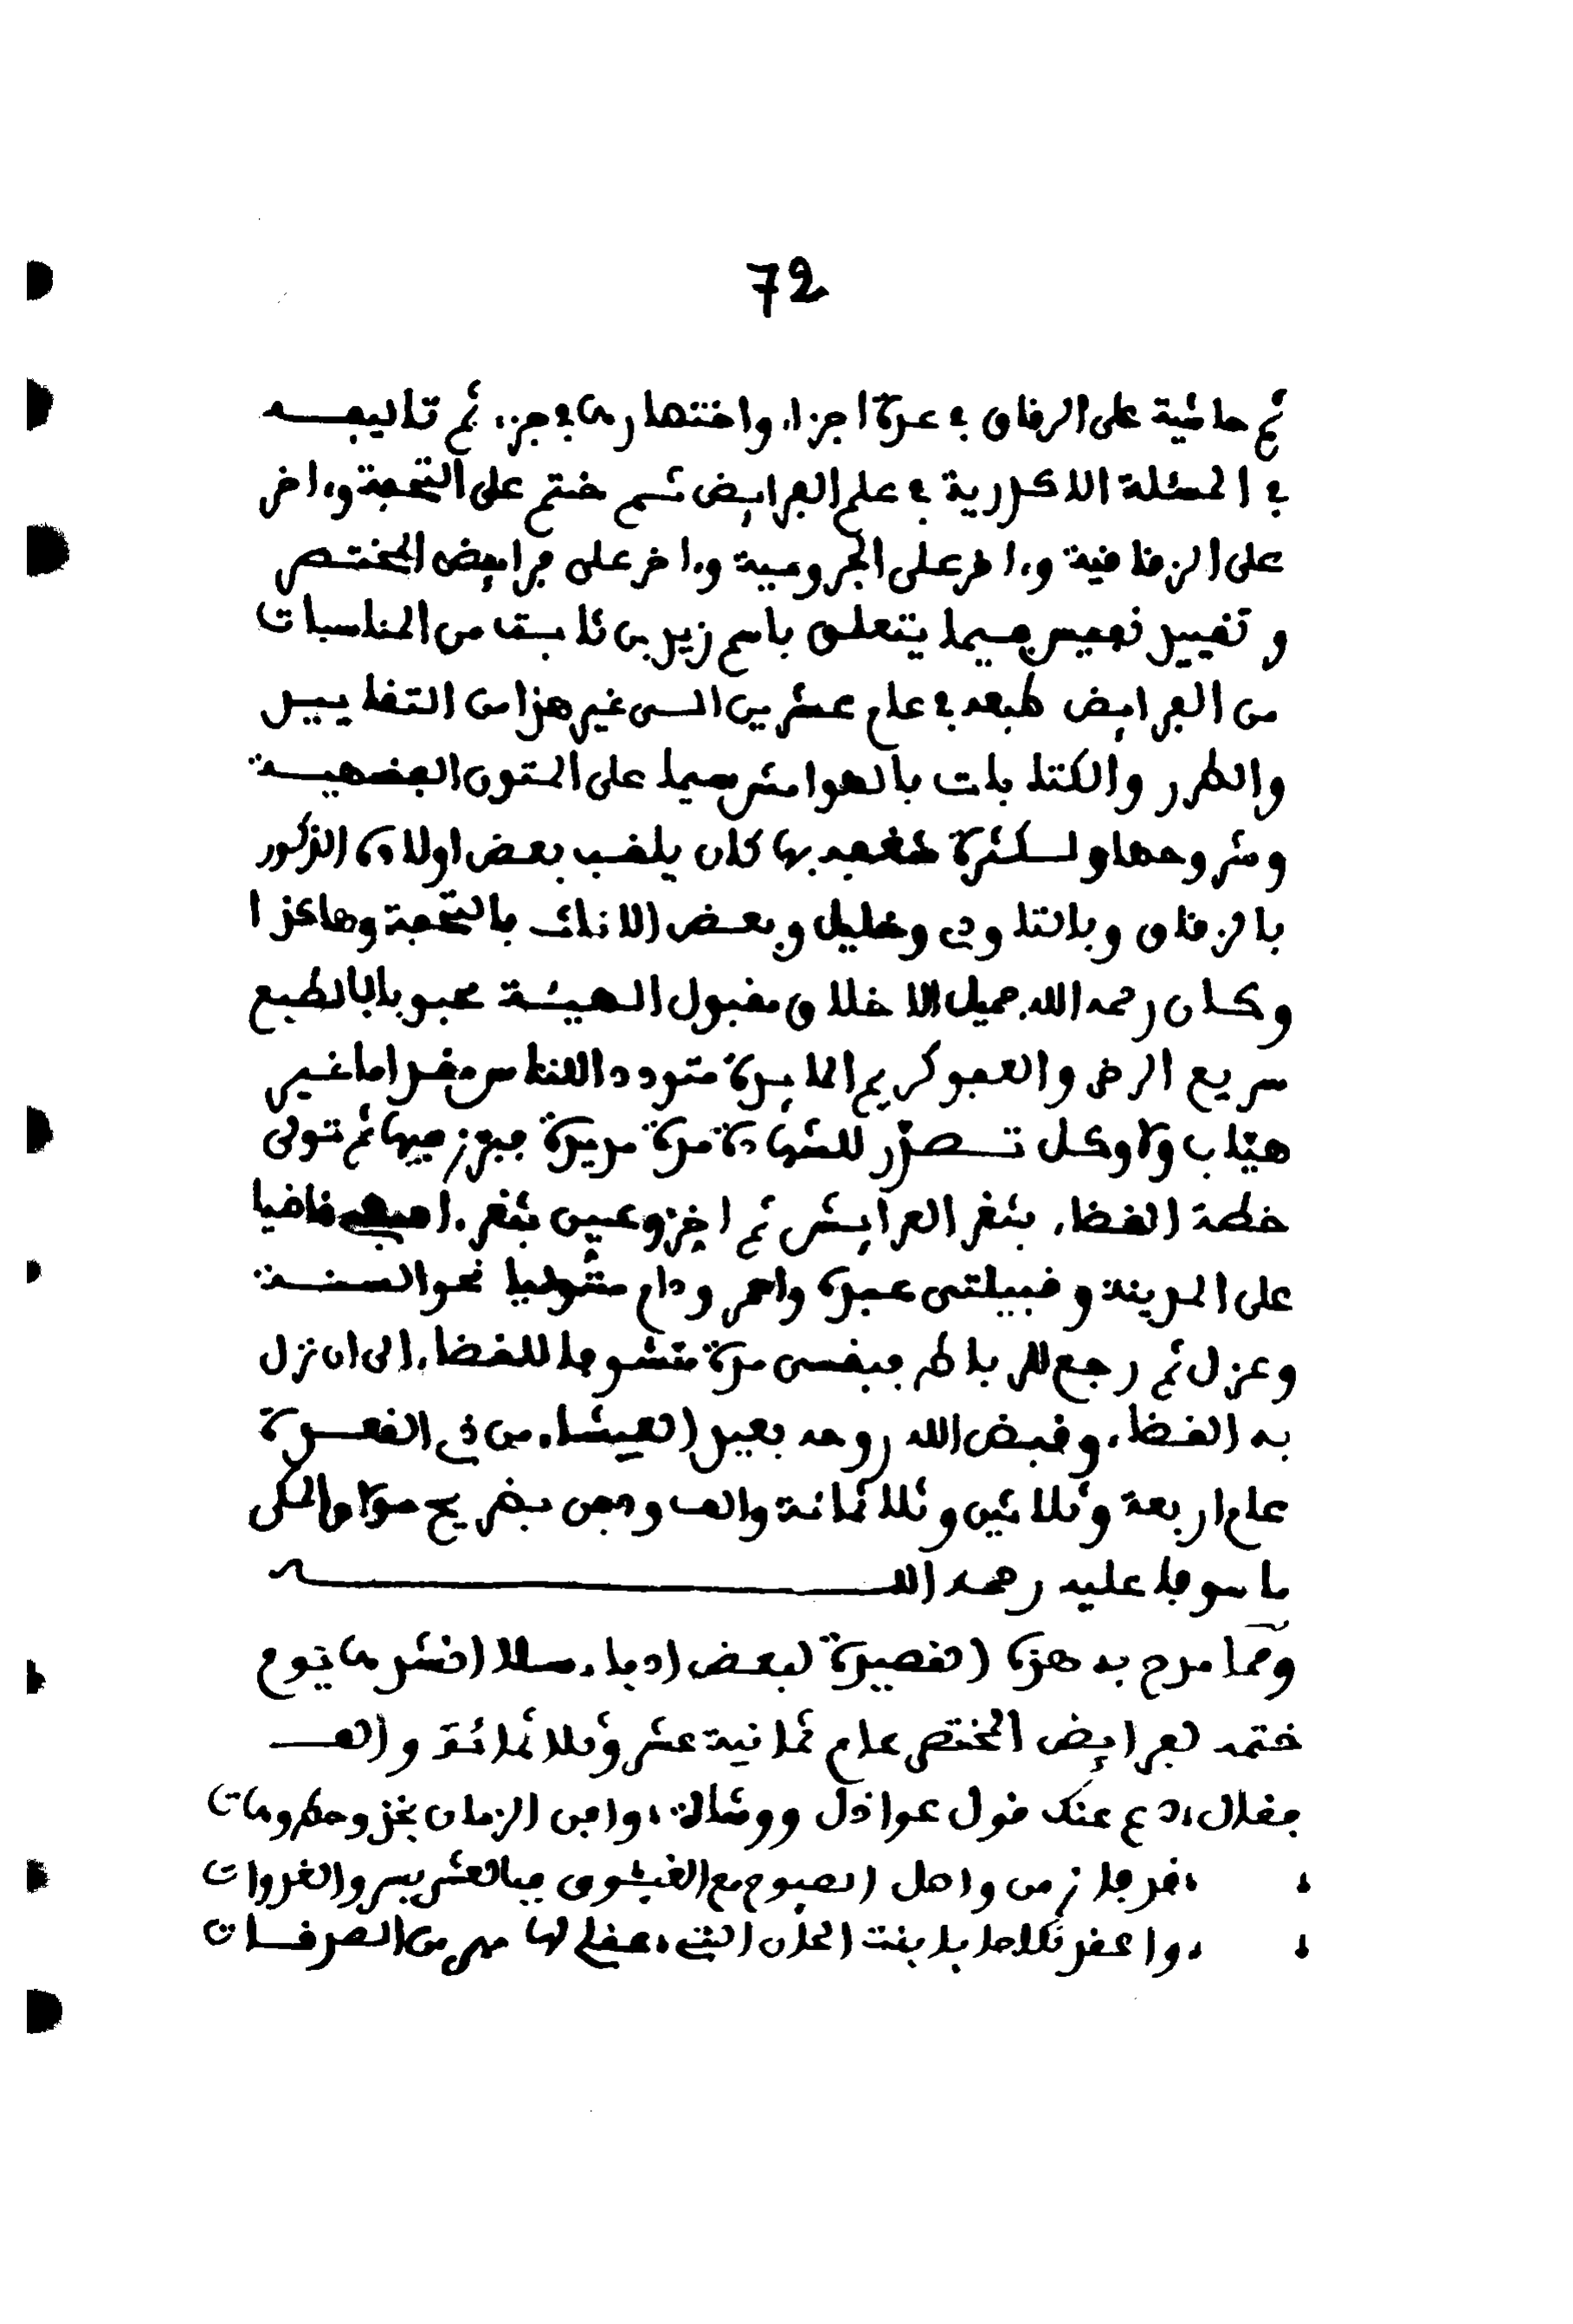 72
ثم حاشية على الزقاق في عدة أجزاء واختصارها في جزء ثم تاليفه
في المسئلة الاكدرية في علم الفرايض ثم ختم على التحفة وءاخر
على الزقاقية وءاخر على الجرومية وءاخر على فرايض المختصر
وتقييد نفيس فيما يتعلق باسم زيد بن ثابت من المناسبات
من الفرايض طبعه في عام عشرين الى غير هذا من التقاييد
والطرر والكتابات بالهوامش سيما على المتون الفقهية
وشروحها ولكثرة شغفه بها كان يلقب بعض اولاده الذكور
بالزقاق وبالتاودي وخليل وبعض الاناث بالتحفة وهاكذا
وكان رحمه الله جميل الاخلاق مقبول الهيئة محبوبا بالطبع
سريع الرضى والعفو كريم المايدة متوددا للناس مقداما غير
هياب ولا وكل تصدر للشهادة مدة مديدة فبرز فيها ثم تولى
خطة القضاء بثغر العرايش ثم اخر وعين بثغر ءاسفي قاضيا
على المدينة وقبيلتي عبدة واحمر ودام متوليا نحو السنة
وعزل ثم رجع للرباط فبقى مدة متشوفا للقضاء الى ان نزل
به القضاء وقبض الله روحه بعيد العشاء من ذي القعدة
عام اربعة وثلاثين وثلاثمائة والف ودفن بضريح مولاي المكي
ماسوفا عليه رحمه الله
ومما مدح به هذه القصيدة لبعض ادباء سلا انشدها يوم
ختمه لفرايض المختصر عام ثمانية عشر وثلاثمائة والف
فقال ،دع عنك قول عواذل ووشاة، وافن الزمان بخذ وهاك وهات
،فرجا زمن واصل الصبوح مع الغبوق فبالعشي والغدوات
،واعقد نكاحا يا بنت الحان التي، عقلي لها مهر من الصدقات